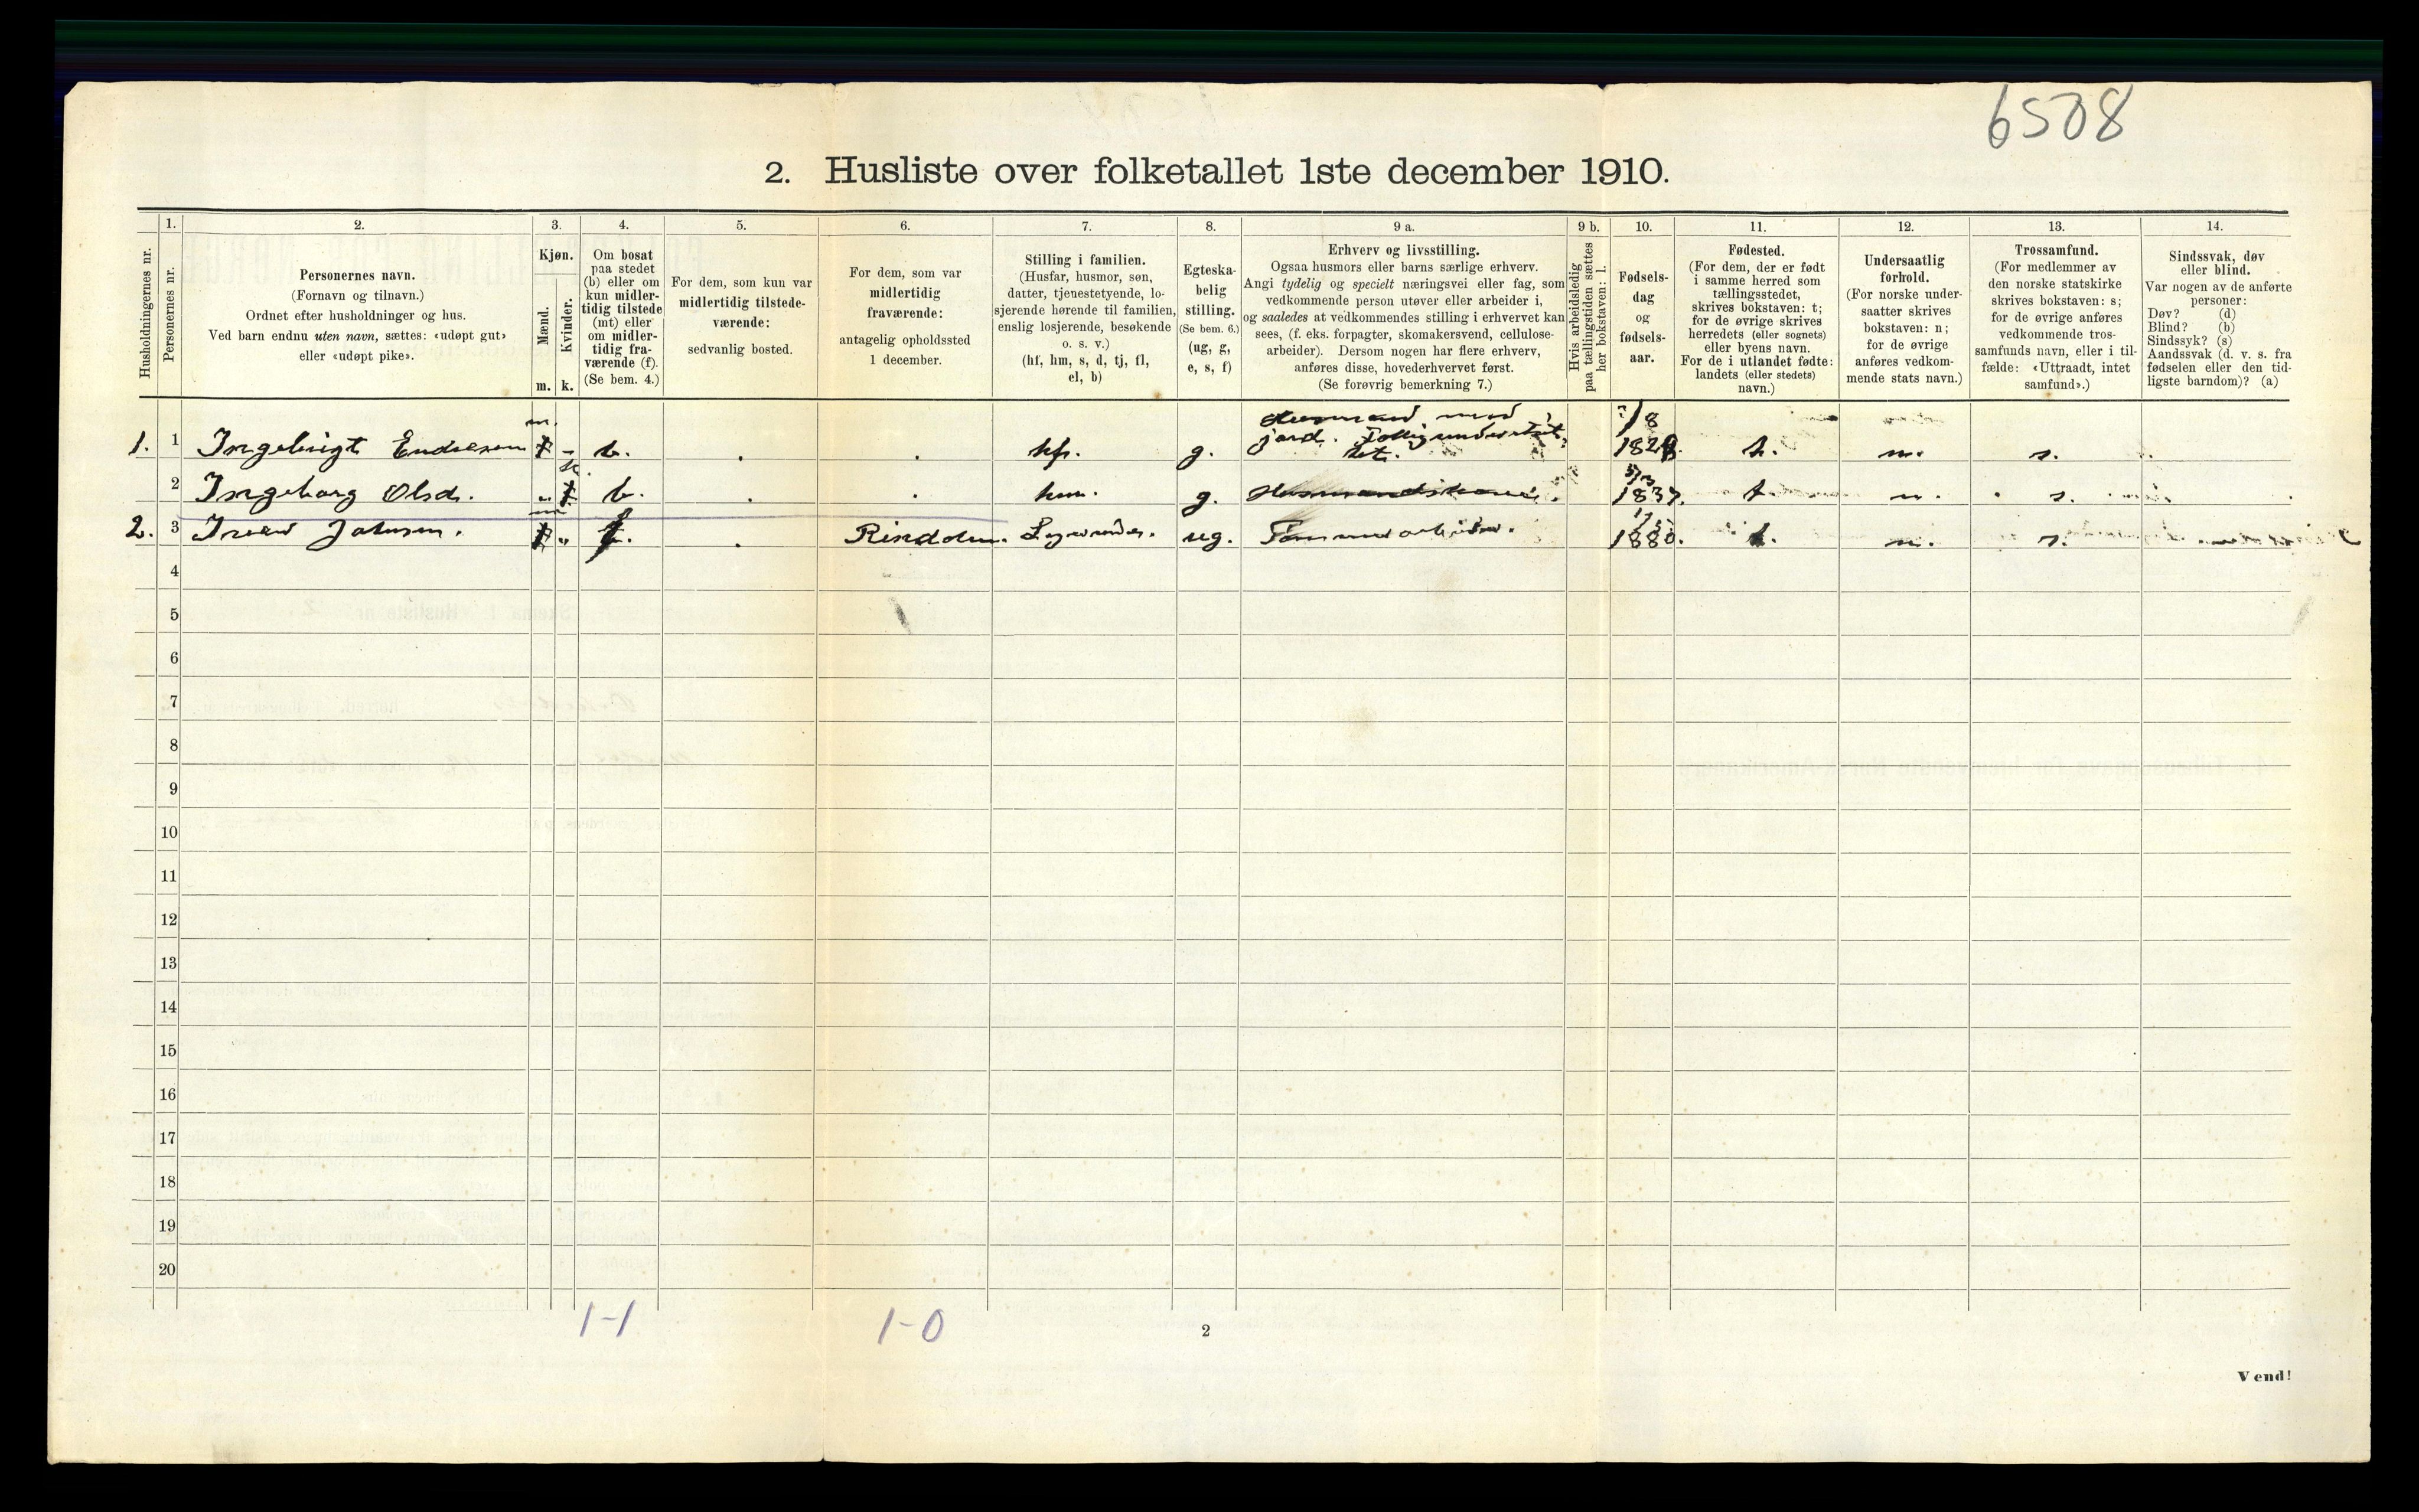 6508
2. Husliste over folketallet 1ste december 1910.
Husholdningernes nr.
1.
Personernes nr.
2.
Personernes navn.
(Fornavn og tilnavn.)
Ordnet efter husholdninger og hus.
Ved barn endnu uten navn, sættes: «udøpt gut»
eller «udøpt pike».
3.
Kjøn.
Mænd.
Kvinder.
m. k.
4.
Om bosat
paa stedet
(b) eller om
kun midler-
tidig tilstede
(mt) eller
om midler-
tidig fra-
værende (f).
(Se bem. 4.)
5.
For dem, som kun var
midlertidig tilstede-
værende:
sedvanlig bosted.
6.
For dem, som var
midlertidig
fraværende:
antagelig opholdssted
1 december.
7.
Stilling i familien.
(Husfar, husmor, søn,
datter, tjenestetyende, lo-
sjerende hørende til familien,
enslig losjerende, besøkende
o. s. v.)
(hf, hm, s, d, tj, fl,
el, b)
8.
Egteska-
belig
stilling.
(Se bem. 6.)
(ug, g,
e, s, f)
9 a.
Erhverv og livsstilling.
Ogsaa husmors eller barns særlige erhverv.
Angi tydelig og specielt næringsvei eller fag, som
vedkommende person utøver eller arbeider i,
og saaledes at vedkommendes stilling i erhvervet kan
sees, (f. eks. forpagter, skomakersvend, cellulose-
arbeider). Dersom nogen har flere erhverv,
anføres disse, hovederhvervet først.
(Se forøvrig bemerkning 7.)
9 b.
Hvis arbeidsledig
paa tællingstiden sættes
her bokstaven: l.
10.
Fødsels-
dag
og
fødsels-
aar.
11.
Fødested.
(For dem, der er født
i samme herred som
tællingsstedet,
skrives bokstaven: t;
for de øvrige skrives
herredets (eller sognets)
eller byens navn.
For de i utlandet fødte:
landets (eller stedets)
navn.)
12.
Undersaatlig
forhold.
(For norske under-
saatter skrives
bokstaven: n;
for de øvrige
anføres vedkom-
mende stats navn.)
13.
Trossamfund.
(For medlemmer av
den norske statskirke
skrives bokstaven: s;
for de øvrige anføres
vedkommende tros-
samfunds navn, eller i til-
fælde: «Uttraadt, intet
samfund».)
14.
Sindssvak, døv
eller blind.
Var nogen av de anførte
personer:
Døv? (d)
Blind? (b)
Sindssyk? (s)
Aandssvak (d. v. s. fra
fødselen eller den tid-
ligste barndom)? (a)
1. 1 Ingebrigt Endresen m. b. hf. g. Husmand med jord. t. n. s.
2 Ingeborg Olsd. k. b. hm. g. Husmandskone. 1837. t. n. s.
2. 3 Johnsen. m f Rinddem. ug. 1880. t. n. s.
4
5
6
7
8
9
10
11
12
13
14
15
16
17
18
19
20
1-1 1-0
2
Vend!